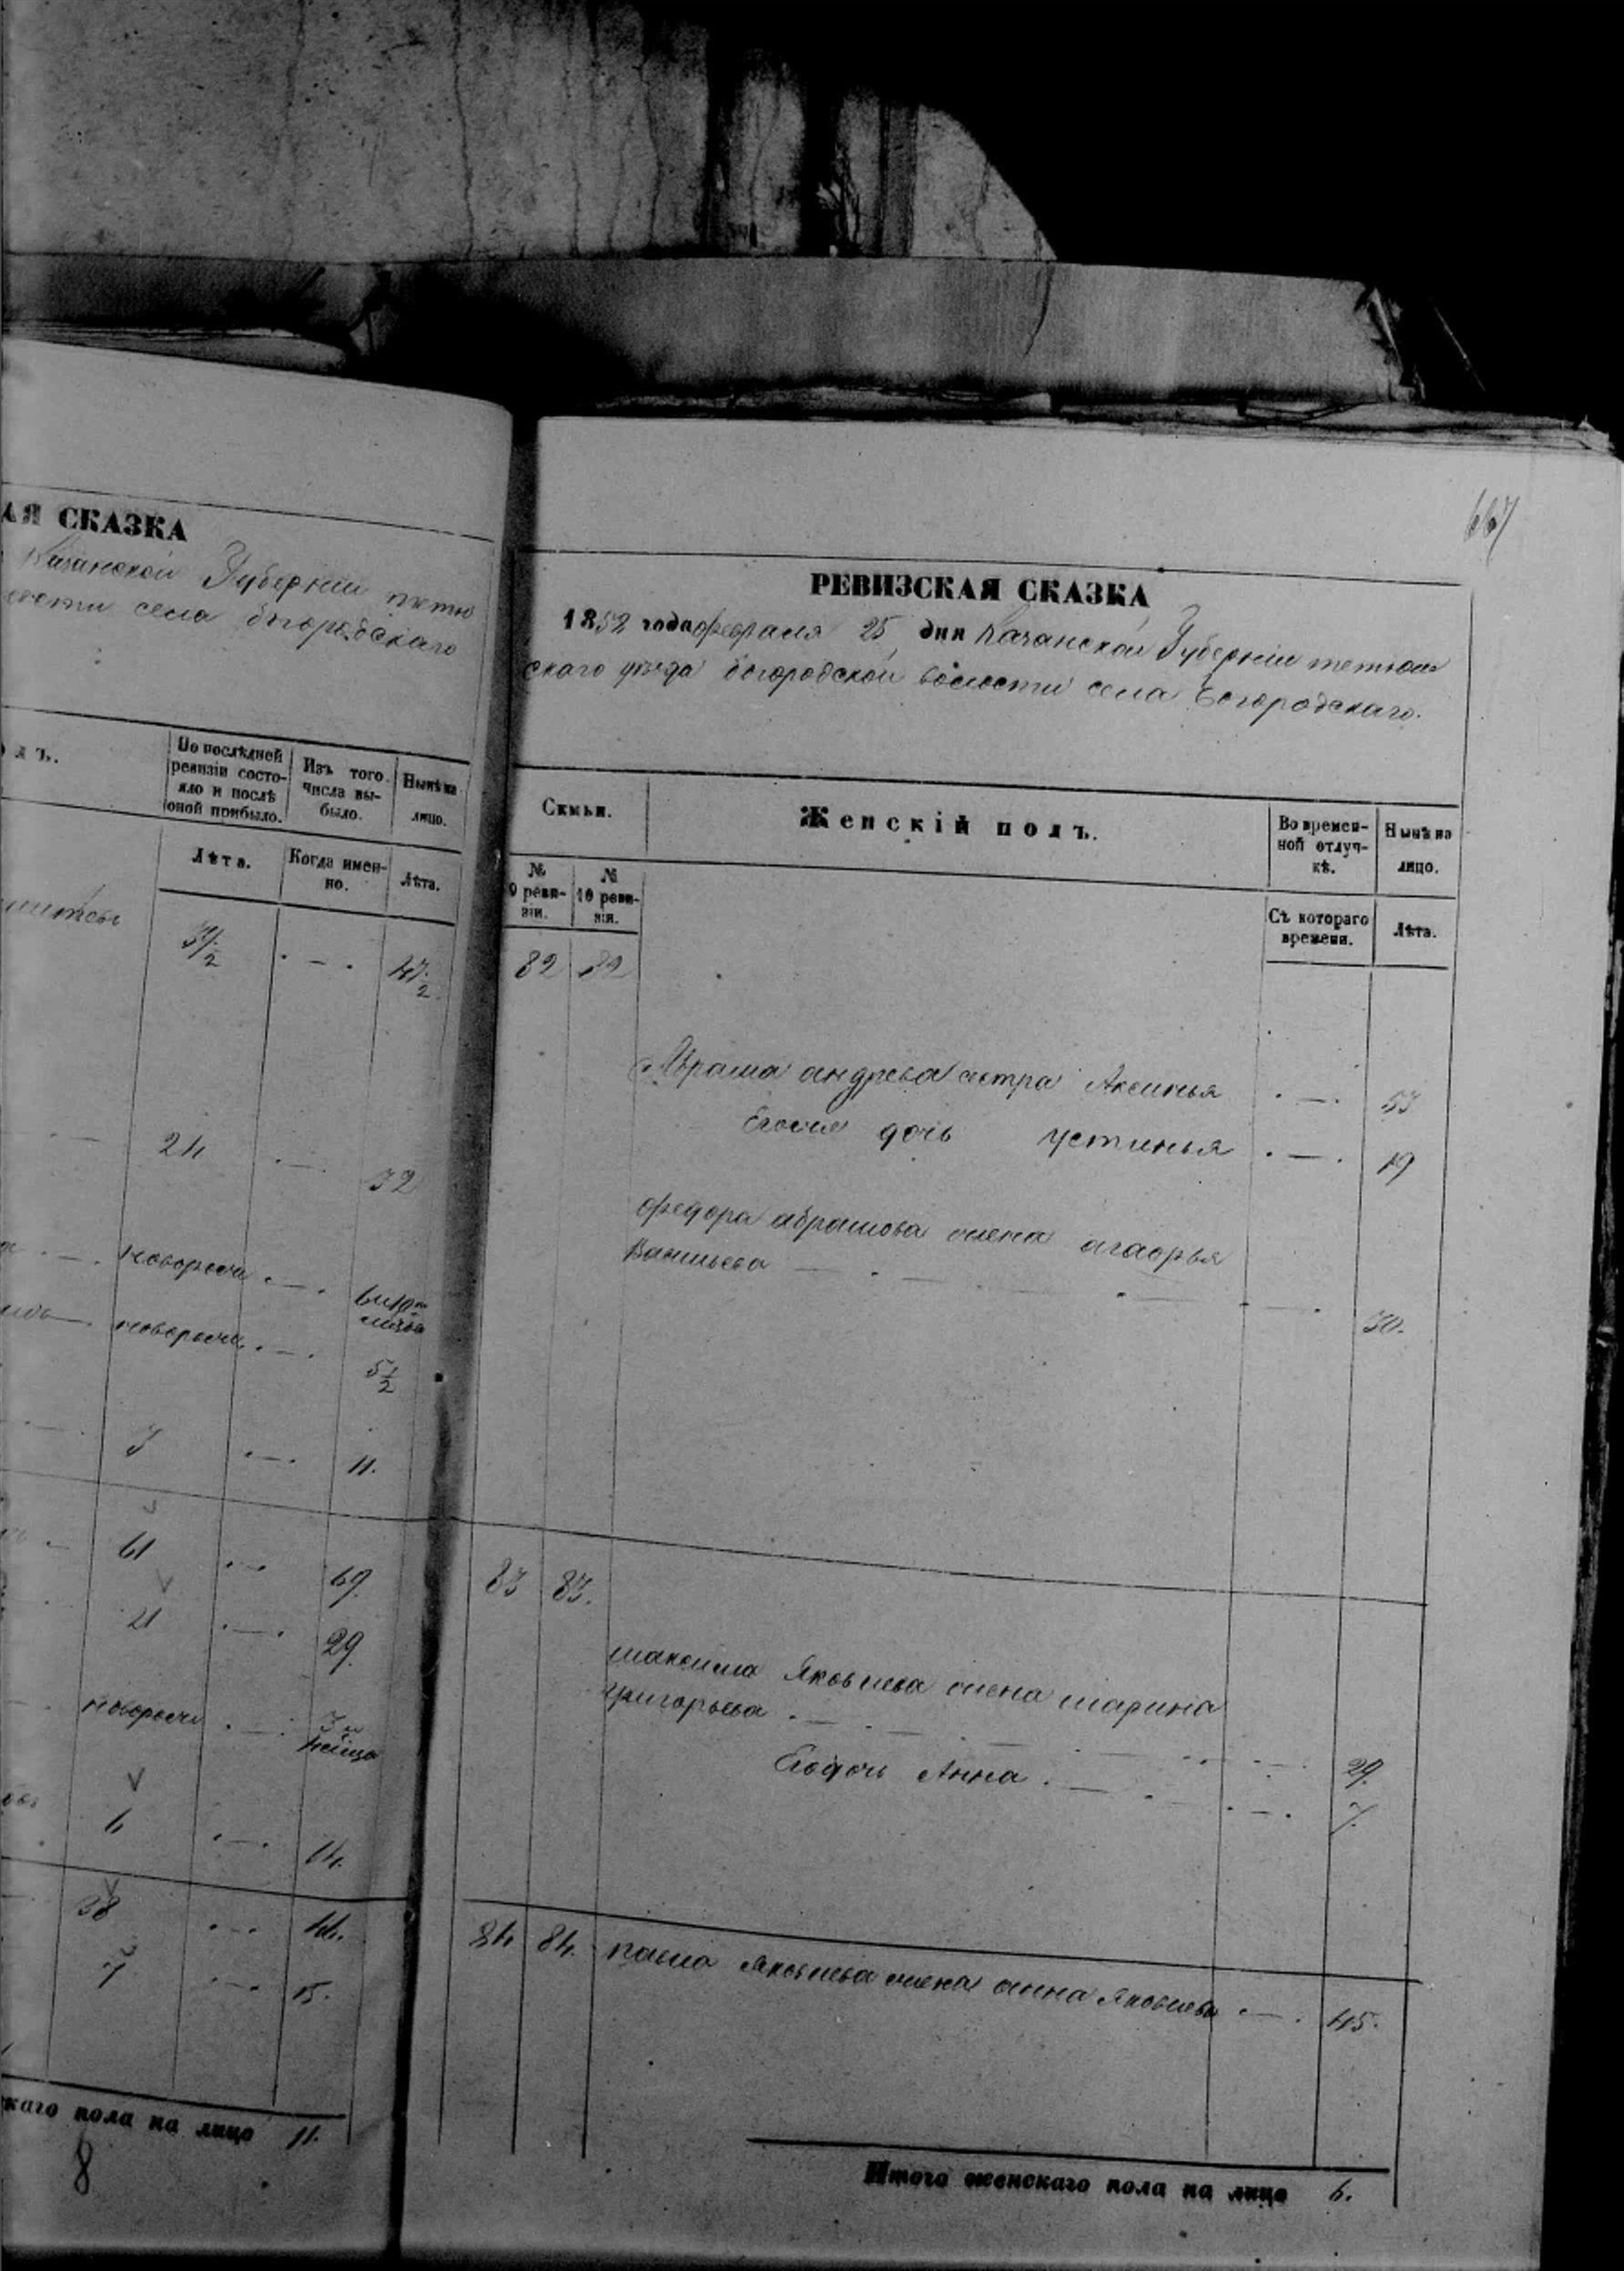 АЯ СКАЗКА
Казанской Губерніи тетю
села богородскаго
По послѣдней
ревизіи состо-
яло и послѣ
оной прибыло.
Изъ того
числа вы-
было.
Нынѣ на
лицо.
Лѣта.
Когда имен-
но.
Лѣта.
24 . — . 32
новорожд . — .
новорожд . — . 5 1/2
3 . — . 11.
61 . — . 69.
21 . — . 29.
новорожд . — .
6 . — . 14.
38 . — . 46.
7 . — . 15.
скаго пола на лицо 11.
8
667
РЕВИЗСКАЯ СКАЗКА
1852 года февраля 25 дня Казанской Губерніи тетюш
скаго уѣзда богородской волости села Богородскаго.
Семьи.
Женскій полъ.
Во времен-
ной отлуч-
кѣ.
Нынѣ на
лицо.
№
9 реви-
зіи.
№
10 реви-
зіи.
Съ котораго
времени.
Лѣта.
82 82
Абрама андреева сестра Аксинья . — . 53
дочь устинья . — . 19
федора абрамова жена агафья
Васильева — . — . — . 30.
83 83.
максима Яковлева жена марина
григорьева . — . — . — 29.
Его дочь Анна . — . — . — . 7.
84 84. павла Яковлева жена анна Яковлева . — . 45.
Итого женскаго пола на лицо 6.